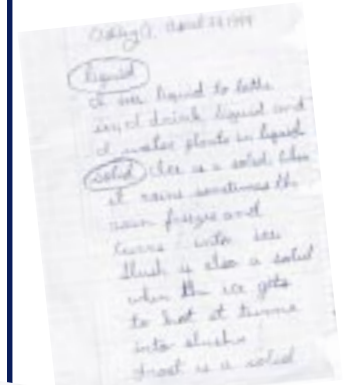 Ashley A. April 29 1999
liquid
I use liquid to bathe
in, I drink liquid and
I water plants in liquid
solid Ice is a solid. When
it rains sometimes the
rain freezes and
turns into ice
Slush is also a solid
when the ice gets
to hot it turns
into slush.
Frost is a solid